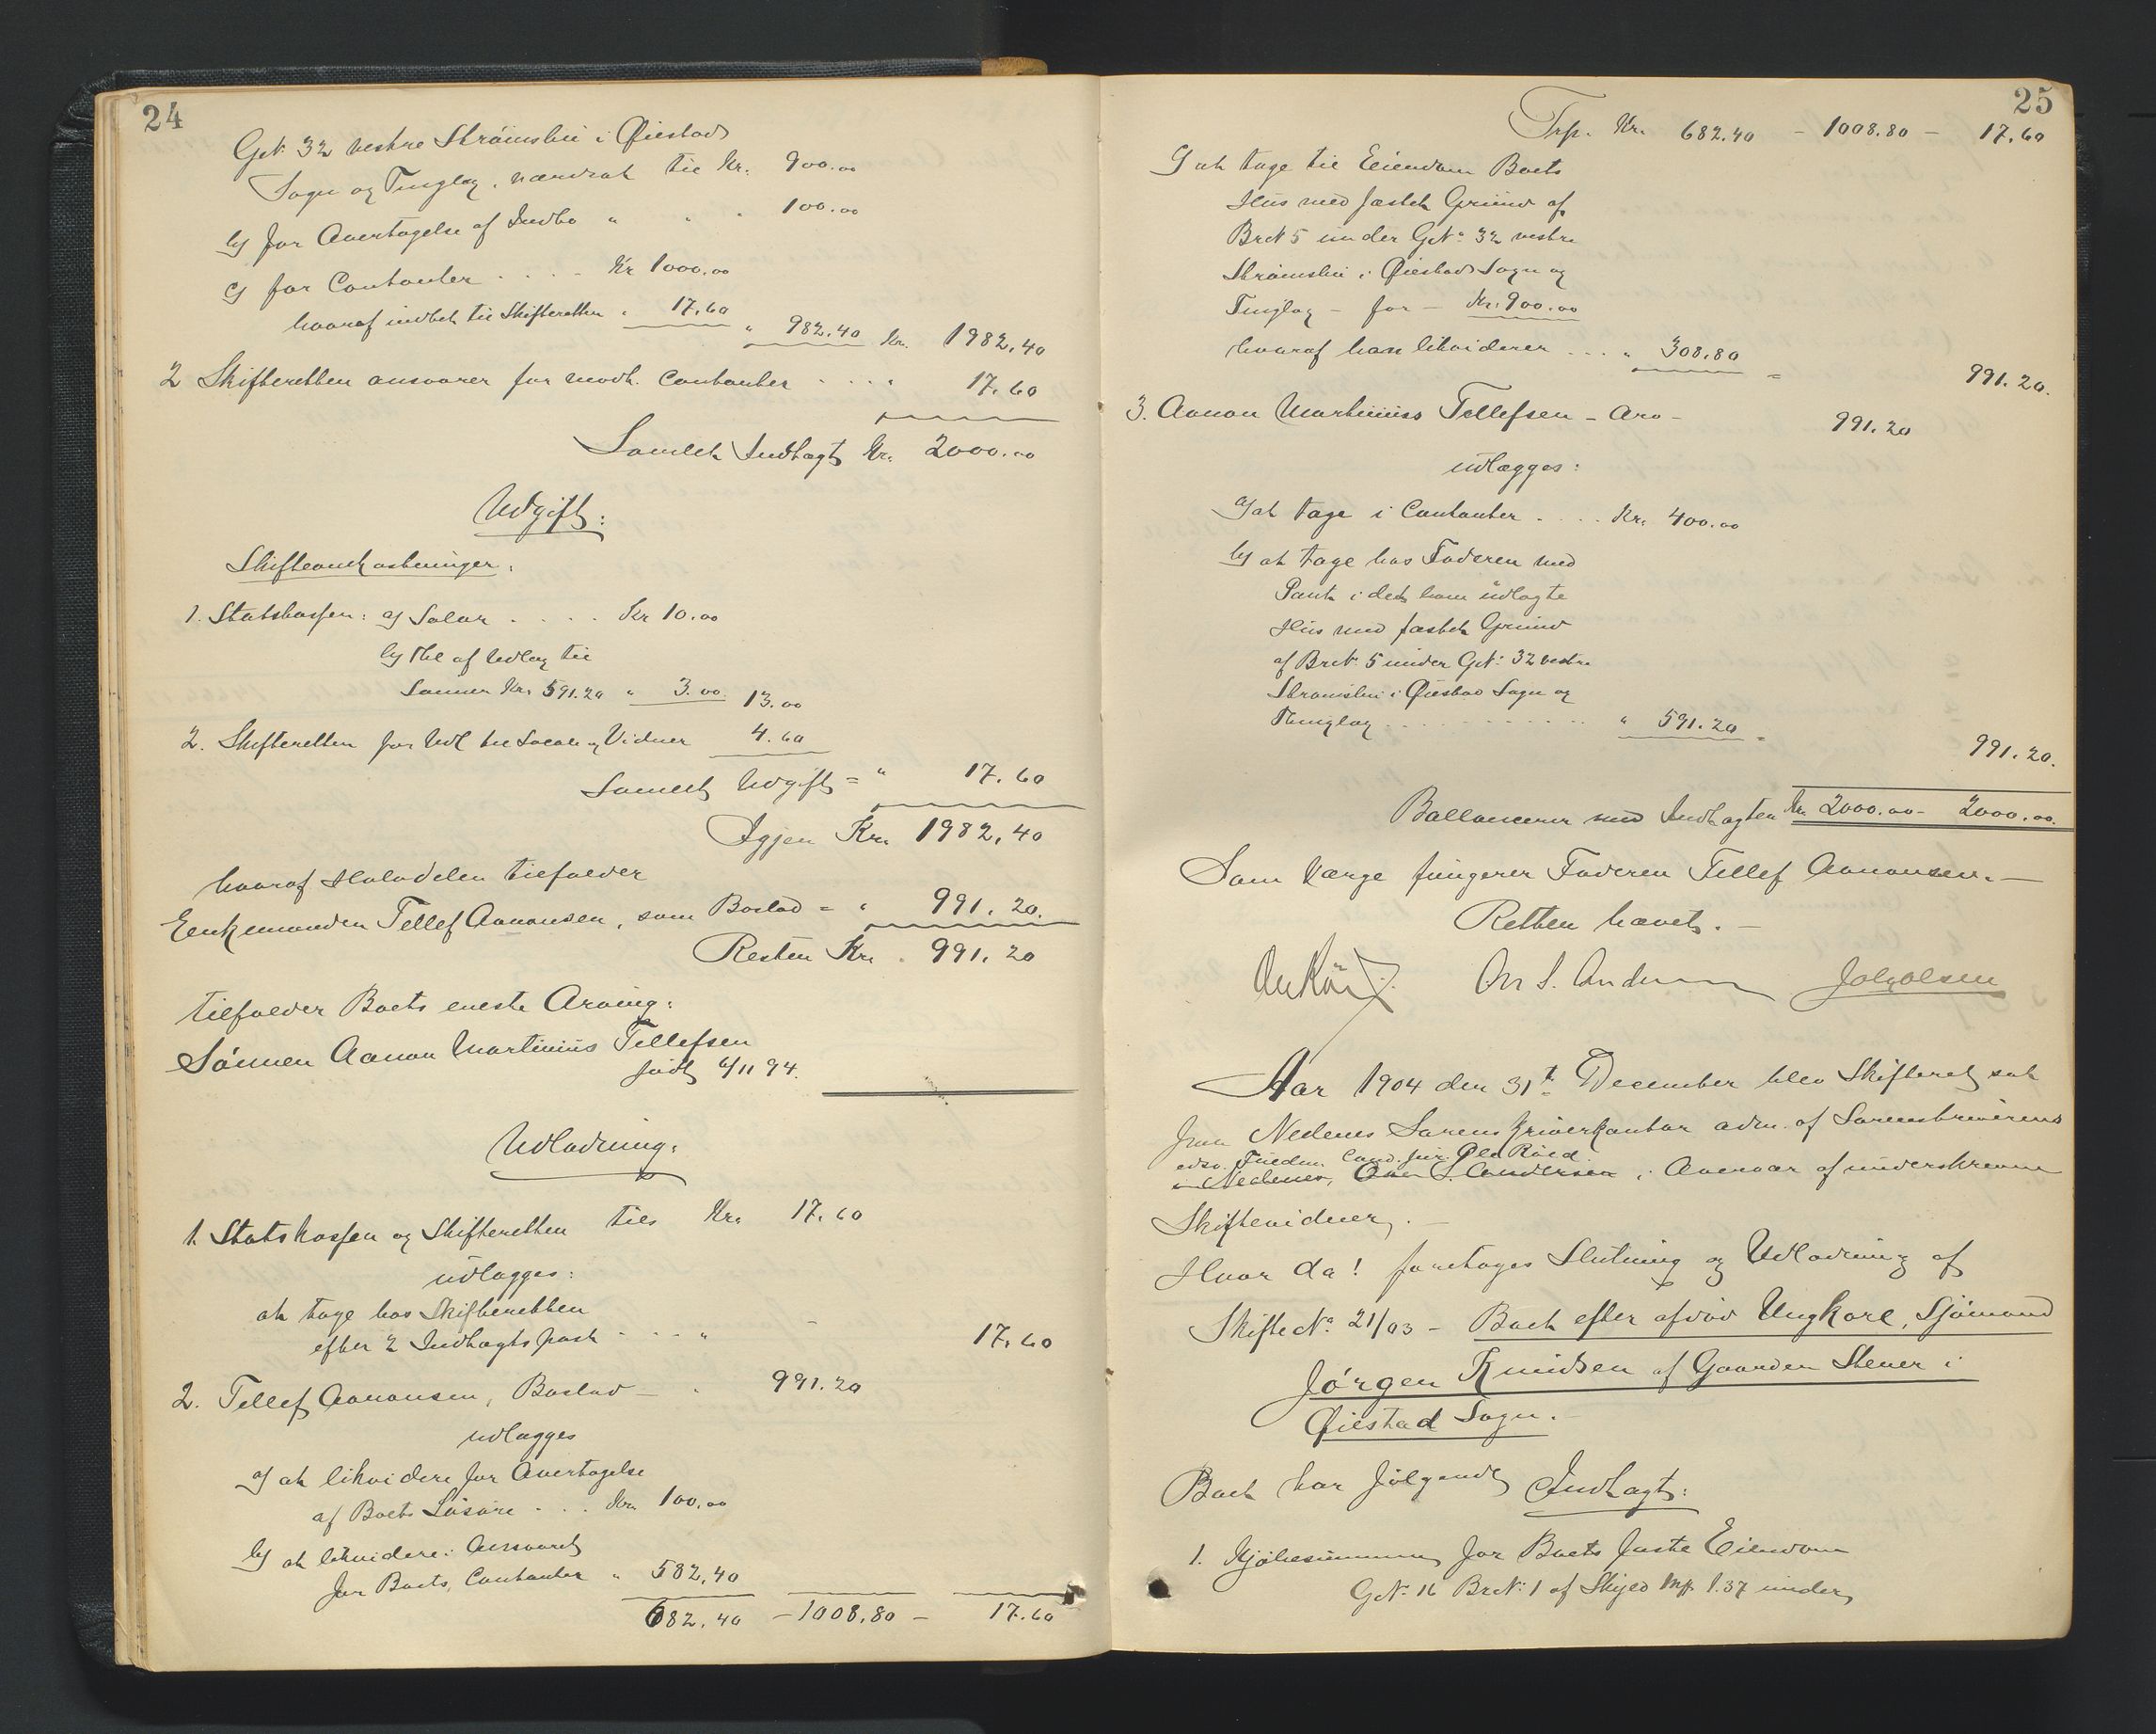 24
GN: 32 vestre Strömsbu i Øiestad
Sogn og Tinglag, værdsat til Kr. 900.00
b) for Overtagelse af Indbo " " " 100.00
c) for Contanter .... Kr 1000.00
hvoraf indbet. til Skifteretten " 17.60 " 982.40 Kr. 1982.40
2 Skifteretten ansvarer for modt. Contanter ... " 17.60
Samlet Indtægt Kr. 2000.00
Udgift:
Skifteomkostninger:
1. Statskassen: a) Salær .... Kr 10.00
b) Thl af Udlæg til
Sønnen Kr. 591.20 " 3.00 13.00
2. Skifteretten for Udl til Locale og Vidner 4.60
Samlet Udgift = " 17.60
Igjen Kr. 1982.40
hvoraf Halvdelen tilfalder
Enkemanden Tellef Aanonsen, som Boslod = " 991.20.
Resten Kr. 991.20
tilfalder Boets eneste Arving:
Sönnen Aanon Martinius Tellefsen
født 6/11 94.
Udlodning:
1. Statskassen og Skifteretten til Kr. 17.60
udlægges:
at tage hos Skifteretten
efter 2 Indtægtspost - .. " 17.60
2. Tellef Aanonsen, Boslod - " 991.20
udlægges
a) at likvidere for Overtagelse
af Boets Løsøre ... Kr. 100.00
b) at likvidere i Ansvaret
for Boets Contanter " 582.40
682.40 - 1008.80 - 17.60
25
Trp. Kr. 682.40 - 1008.80 - 17.60
c) at tage til Eiendom Boets
Hus med fæstet Grund af
BrN 5 under GN: 32 vestre
Strömsbu i Øiestad Sogn og
Tinglag - for - Kr. 900.00
hvoraf han likviderer ... " 308.80 = 991.20.
3. Aanon Martinius Tellefsen - Arv - 991.20
udlægges:
a) at tage i Contanter .... Kr. 400.00
b) at tage hos Faderen med
Pant i det ham udlagte
Hus med fæstet Grund
af BrN: 5 under GN: 32 vestre
Strömsbu i Øiestad Sogn og
Thinglag .......... " 591.20 = 991.20.
Ballancerer med Indtægten Kr. 2000.00 - 2000.00.
Som Værge fungerer Faderen Tellef Aanonsen. -
Retten hævet. -
On S. Andersen Joh. Olsen
Aar 1904 den 31t December blev Skifteret sat
paa Nedenes Sorenskriverkontor adm. af Sorenskriverens
edsv. Fuldm. Cand. jur. Ole Röed
i Nedenes, Oven S. Andersen, i Overvær af underskrevne
Skiftevidner. -
Hvor da! foretoges Slutning og Udlodning af
Skifte N: 21/03 - Boet efter afdød Ungkarl, Sjömand
Jörgen Knudsen af Gaarden Stener i
Øiestad Sogn. -
Boet har følgende Indtægt:
1. Kjöbesummen for Boets faste Eiendom
GN: 16 BrN: 1 af Skyld Mk 1.37 under